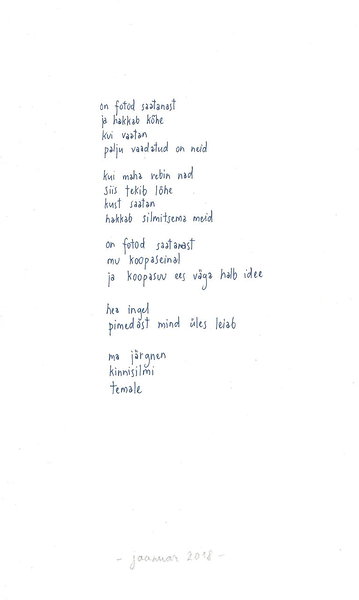 on fotod saatanast
ja hakkab kõhe
kui vaatan
palju vaadatud on neid
kui maha rebin nad
siis tekib lõhe
kust saatan
hakkab silmitsema meid
on fotod saatanast
mu koopaseinal
ja koopasuu ees väga halb idee
hea ingel
pimedast mind üles leiab
ma järgnen
kinnisilmi
temale
- jaanuar 2018 -